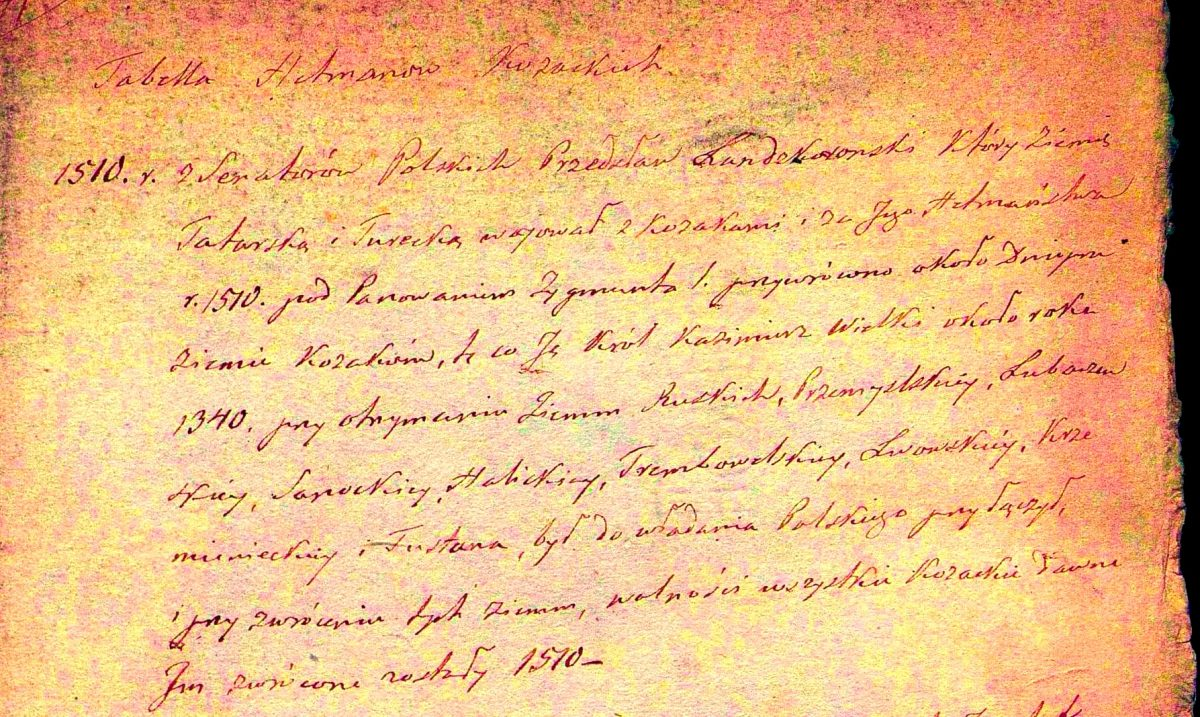 Tabella Hetmanow Kozackich
1510. r. z Senatorów Polskich Przedsław Landskoronski Który Ziemię
Tatarską i Turecką wojował z Kozakami i za Jego Hetmaństwa
r. 1510. pod Panowaniem Zygmunta 1. przywrócono około Dniepru
Ziemie Kozaków, tę co Ją Król Kazimierz Wielki około roku
1340. przy otrzymaniu Ziemm Ruskich, Przemyslskiéy, Lubaczew
skiéy, Sanockiey, Halickiey, Trembowelskiéy, Lwowskiéy, Krze
mienieckiéy i Tustana, był do władania Polskiego przyłączył,
i przy zwróceniu tych Ziemm, wolności wszystkie Kozackie dawne
Jm zwrócone zostały 1510 –